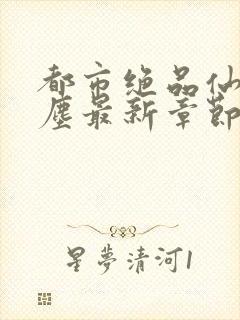 都市绝品仙
塵最新章節
星夢清河1